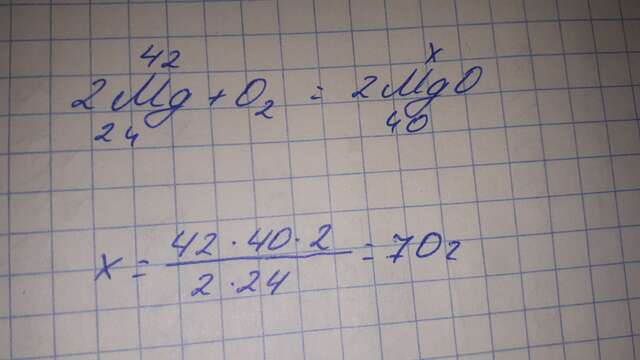 42 x
2Mg + O₂ = 2MgO
24 40
x = 42 · 40 · 2 / 2 · 24 = 70г